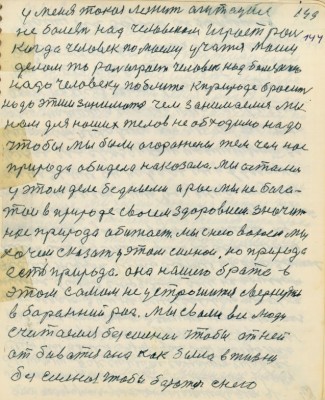 у меня такая лежит агитация 144
не болезнь над человеком играет рол 144
когда человек по моему учатся моим
делом то рол играет человек над болезнью
надо человеку любить к природе бросить
надо этим заниматся чем занимаемся мы
нам для наших телов необходимо надо
чтобы мы были огорожены тем чем нас
природа обидела наказала. Мы остались
у этом деле бедными а рас мы не бога-
тои в природе своем здоровием. значит
нас природа обижает, мы с нею боремся мы
хочем сказать у этом сильно, но природа
есть природа. она нашего брата в
этом самом не устрошится свернуть
в баранний рог. Мы свои вси люди
считаемся бессилном чтобы от ней
отбиватся она как была в жизни
бессилною чтобы боротся с нею